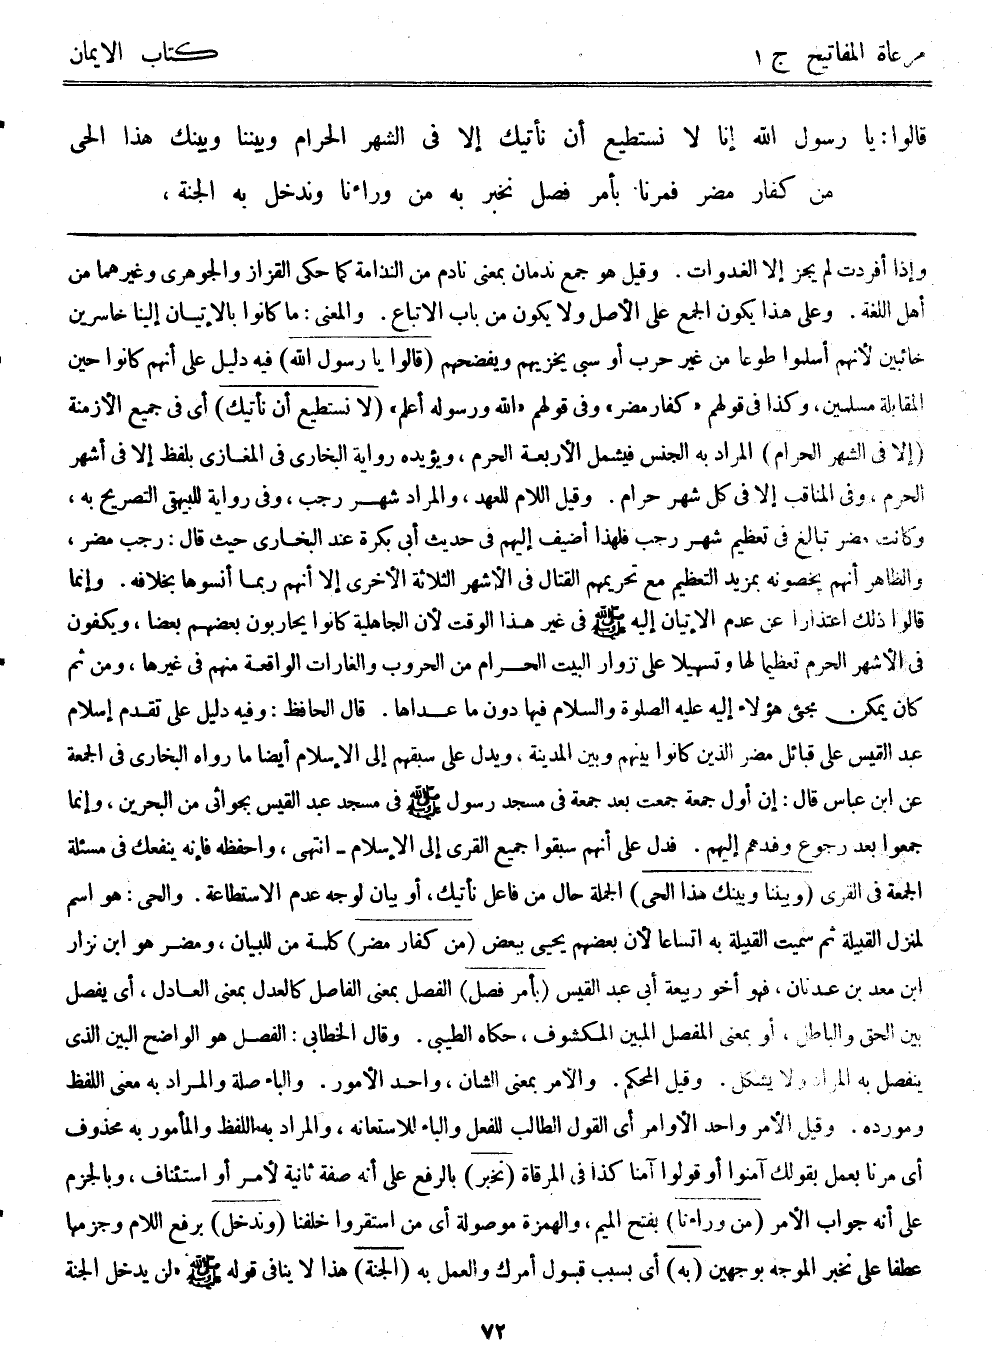 مرعاة المفاتيح ج ١
كتاب الايمان
قالوا: يا رسول الله إنا لا نستطيع أن نأتيك إلا فى الشهر الحرام وبيننا وبينك هذا الحى
من كفار مضر فمرنا بأمر فصل نخبر به من وراءنا وندخل به الجنة ،
وإذا أفردت لم يجز إلا الغدوات . وقيل هو جمع ندمان بمعنى نادم من الندامة كما حكى القزاز والجوهرى وغيرهما من
أهل اللغة . وعلى هذا يكون الجمع على الأصل ولا يكون من باب الاتباع . والمعنى : ما كانوا بالإتيان إلينا خاسرين
خائبين لأنهم أسلموا طوعا من غير حرب أو سبى يخزيهم ويفضحهم (قالوا يا رسول الله) فيه دليل على أنهم كانوا حين
المقابلة مسلمين ، وكذا فى قولهم «كفار مضر» وفى قولهم «الله ورسوله أعلم» (لا نستطيع أن نأتيك) أى فى جميع الأزمنة
(إلا فى الشهر الحرام) المراد به الجنس فيشمل الأربعة الحرم ، ويؤيده رواية البخارى فى المغازى بلفظ إلا فى أشهر
الحرم ، وفى المناقب إلا فى كل شهر حرام . وقيل اللام للعهد ، والمراد شهر رجب ، وفى رواية للبيهقى التصريح به ،
وكانت مضر تبالغ فى تعظيم شهر رجب فلهذا أضيف إليهم فى حديث أبى بكرة عند البخارى حيث قال : رجب مضر ،
والظاهر أنهم يخصونه بمزيد التعظيم مع تحريمهم القتال فى الأشهر الثلاثة الأخرى إلا أنهم ربما أنسوها بخلافه . وإنما
قالوا ذلك اعتذارا عن عدم الإتيان إليه ﷺ فى غير هذا الوقت لأن الجاهلية كانوا يحاربون بعضهم بعضا ، ويكفون
فى الأشهر الحرم تعظيما لها وتسهيلا على زوار البيت الحرام من الحروب والغارات الواقعة منهم فى غيرها ، ومن ثم
كان يمكن مجئ هؤلاء إليه عليه الصلوة والسلام فيها دون ما عداها . قال الحافظ : وفيه دليل على تقدم إسلام
عبد القيس على قبائل مضر الذين كانوا بينهم وبين المدينة ، ويدل على سبقهم إلى الإسلام أيضا ما رواه البخارى فى الجمعة
عن ابن عباس قال : إن أول جمعة جمعت بعد جمعة فى مسجد رسول ﷺ فى مسجد عبد القيس بجواثى من البحرين ، وإنما
جمعوا بعد رجوع وفدهم إليهم . فدل على أنهم سبقوا جميع القرى إلى الإسلام ـ انتهى ، واحفظه فإنه ينفعك فى مسئلة
الجمعة فى القرى (وبيننا وبينك هذا الحى) الجملة حال من فاعل نأتيك، أو بيان لوجه عدم الاستطاعة . والحى : هو اسم
لمنزل القبيلة ثم سميت القبيلة به اتساعا لأن بعضهم يحيى ببعض (من كفار مضر) كلمة من للبيان ، ومضر هو ابن نزار
ابن معد بن عدنان ، فهو أخو ربيعة أبى عبد القيس (بأمر فصل) الفصل بمعنى الفاصل كالعدل بمعنى العادل ، أى يفصل
بين الحق والباطل ، أو بمعنى المفصل المبين المكشوف ، حكاه الطيبى . وقال الخطابى : الفصل هو الواضح البين الذى
ينفصل به المراد ولا يشكل . وقيل المحكم . والأمر بمعنى الشان ، واحد الأمور . والباء صلة والمراد به معنى اللفظ
ومورده . وقيل الأمر واحد الأوامر أى القول الطالب للفعل والباء للاستعانه ، والمراد به اللفظ والمأمور به محذوف
أى مرنا بعمل بقولك آمنوا أو قولوا آمنا كذا فى المرقاة (نخبر) بالرفع على أنه صفة ثانية لأمر أو استئناف ، وبالجزم
على أنه جواب الأمر (من وراءنا) بفتح الميم ، والهمزة موصولة أى من استقروا خلفنا (وندخل) برفع اللام وجزمها
عطفا على نخبر الموجه بوجهين (به) أى بسبب قبول أمرك والعمل به (الجنة) هذا لا ينافى قوله ﷺ «لن يدخل الجنة
٧٢